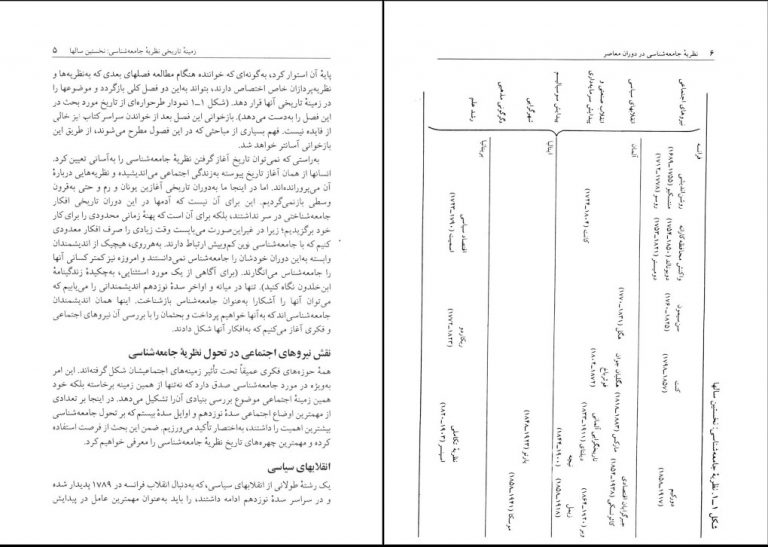 زمینهٔ تاریخی نظریهٔ جامعه‌شناسی: نخستین سالها ۵
پایهٔ آن استوار کرد، به‌گونه‌ای که خواننده هنگام مطالعه فصلهای بعدی که به‌نظریه‌ها و
نظریه‌پردازان خاص اختصاص دارند، بتواند به‌این دو فصل کلی بازگردد و موضوعها را
در زمینهٔ تاریخی آنها قرار دهد. (شکل ۱ــ۱ نمودار طرحواره‌ای از تاریخ مورد بحث در
این فصل را به‌دست می‌دهد). بازخوانی این فصل بعد از خواندن سراسر کتاب نیز خالی
از فایده نیست. فهم بسیاری از مباحثی که در این فصول مطرح می‌شوند، از طریق این
بازخوانی آسانتر خواهد شد.
به‌راستی که نمی‌توان تاریخ آغاز گرفتن نظریهٔ جامعه‌شناسی را به‌آسانی تعیین کرد.
انسانها از همان آغاز تاریخ پیوسته به‌زندگی اجتماعی می‌اندیشیده و نظریه‌هایی دربارهٔ
آن می‌پرورانده‌اند. اما در اینجا ما به‌دوران تاریخی آغازین یونان و رم و حتی به‌قرون
وسطی بازنمی‌گردیم. این برای آن نیست که آدمها در این دوران تاریخی افکار
جامعه‌شناختی در سر نداشتند، بلکه برای آن است که پهنهٔ زمانی محدودی را برای کار
خود برگزیدیم؛ زیرا در غیراین‌صورت می‌بایست وقت زیادی را صرف افکار معدودی
کنیم که با جامعه‌شناسی نوین کم‌وبیش ارتباط دارند. به‌هرروی، هیچیک از اندیشمندان
وابسته به‌این دوران خودشان را جامعه‌شناس نمی‌دانستند و امروزه نیز کمتر کسانی آنها
را جامعه‌شناس می‌انگارند. (برای آگاهی از یک مورد استثنایی، به‌چکیدهٔ زندگینامهٔ
ابن‌خلدون نگاه کنید). تنها در میانه و اواخر سدهٔ نوزدهم اندیشمندانی را می‌یابیم که
می‌توان آنها را آشکارا به‌عنوان جامعه‌شناس بازشناخت. اینها همان اندیشمندان
جامعه‌شناسی‌اند که به‌آنها خواهیم پرداخت و بحثمان را با بررسی آن نیروهای اجتماعی
و فکری آغاز می‌کنیم که به‌افکار آنها شکل دادند.
نقش نیروهای اجتماعی در تحول نظریهٔ جامعه‌شناسی
همهٔ حوزه‌های فکری عمیقاً تحت تأثیر زمینه‌های اجتماعیشان شکل گرفته‌اند. این امر
به‌ویژه در مورد جامعه‌شناسی صدق دارد که نه‌تنها از همین زمینه برخاسته بلکه خود
همین زمینهٔ اجتماعی موضوع بررسی بنیادی آن‌را تشکیل می‌دهد. در اینجا بر تعدادی
از مهمترین اوضاع اجتماعی سدهٔ نوزدهم و اوایل سدهٔ بیستم که بر تحول جامعه‌شناسی
بیشترین اهمیت را داشتند، به‌اختصار تأکید می‌ورزیم. ضمن این بحث از فرصت استفاده
کرده و مهمترین چهره‌های تاریخ نظریهٔ جامعه‌شناسی را معرفی خواهیم کرد.
انقلابهای سیاسی
یک رشتهٔ طولانی از انقلابهای سیاسی، که‌به‌دنبال انقلاب فرانسه در ۱۷۸۹ پدیدار شده
و در سراسر سدهٔ نوزدهم ادامه داشتند، را باید به‌عنوان مهمترین عامل در پیدایش
۶ نظریهٔ جامعه‌شناسی در دوران معاصر
شکل ۱ــ۱. نظریهٔ جامعه‌شناسی: نخستین سالها
نیروهای اجتماعی
انقلابهای سیاسی
انقلاب صنعتی و
پیدایش سرمایه‌داری
پیدایش سوسیالیسم
شهرگرایی
دگرگونی مذهبی
رشد علم
فرانسه
روشن‌اندیشی
منتسکیو (۱۶۸۹ــ۱۷۵۵)
روسو (۱۷۱۲ــ۱۷۷۸)
واکنش محافظه‌کارانه
دوبونالد (۱۷۵۴ــ۱۸۴۰)
دومیستر (۱۷۵۳ــ۱۸۲۱)
سن‌سیمون
(۱۷۶۰ــ۱۸۲۵)
کنت
(۱۷۹۸ــ۱۸۵۷)
دورکیم
(۱۸۵۸ــ۱۹۱۷)
آلمان
کانت (۱۷۲۴ــ۱۸۰۴)
هگل (۱۷۷۰ــ۱۸۳۱)
هگلیان جوان
فوئرباخ
(۱۸۰۴ــ۱۸۷۲)
مارکس (۱۸۱۸ــ۱۸۸۳)
جبرگرایان اقتصادی
کائوتسکی (۱۸۵۴ــ۱۹۳۸)
تاریخگرایی آلمانی
دیلتای (۱۸۳۳ــ۱۹۱۱)
وبر (۱۸۶۴ــ۱۹۲۰)
نیچه
(۱۸۴۴ــ۱۹۰۰)
زیمل
(۱۸۵۸ــ۱۹۱۸)
ایتالیا
پارتو (۱۸۴۸ــ۱۹۲۳)
موسکا (۱۸۵۸ــ۱۹۴۱)
بریتانیا
اقتصاد سیاسی
اسمیت (۱۷۲۳ــ۱۷۹۰)
ریکاردو
(۱۷۷۲ــ۱۸۲۳)
نظریهٔ تکاملی
اسپنسر (۱۸۲۰ــ۱۹۰۳)